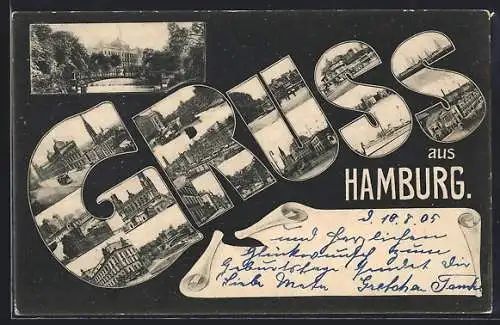 GRUSS
aus
HAMBURG.
D. 18.8.05
und herzlichen
Glückwunsch zum
Geburtstage sendet Dir
Liebe Meta Gretchen